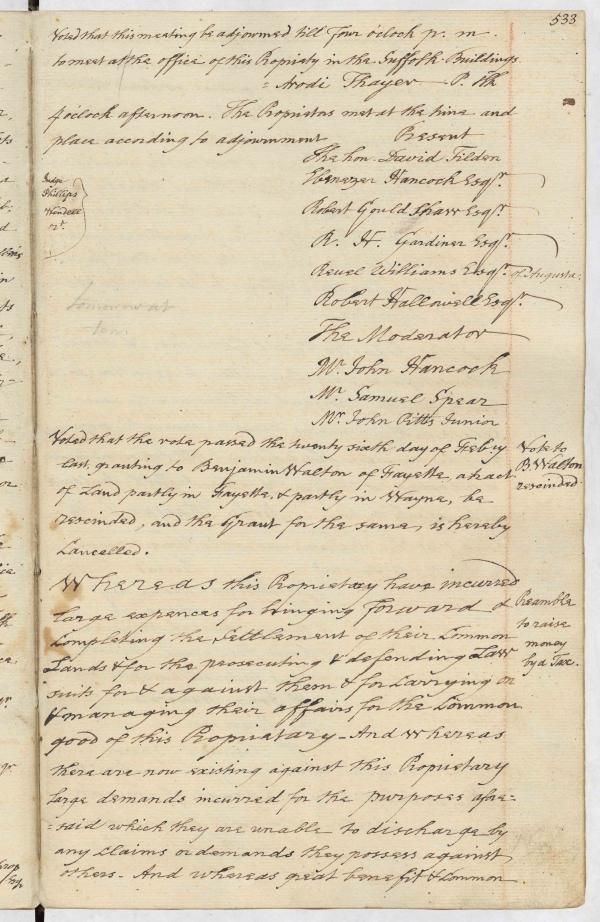 533
Voted that this meeting be adjourned till Four o'clock p. m.
to meet at the office of this Propriety in the Suffolk Buildings
= Arodi Thayer P. Clk
4 o'clock afternoon. The Proprietors met at the time and
place according to adjournment Present
The hon. David Tilden
Ebenezer Hancock Esqr.
Robert Gould Shaw Esqr.
R. H. Gardiner Esqr.
Reuel Williams Esqr. of Augusta.
Robert Hallowell Esqr.
The Moderator
Mr. John Hancock
Mr. Samuel Spear
Mr. John Pitts Junior
Judge
Phillips
Wendell
Tomorrow at
ten
Voted that the vote passed the twenty sixth day of Feb'ry
last, granting to Benjamin Walton of Fayette, a tract
of Land partly in Fayette, & partly in Wayne, be
rescinded, and the Grant for the same, is hereby
Cancelled.
Vote to
B. Walton
rescinded
Whereas this Propriatary have incurred
large expences for bringing forward &
Completing the Settlement of their Common
Lands & for the prosecuting & defending Law
suits for & against them & for Carrying on
& managing their affairs for the Common
good of this Propriatary - And whereas
there are now existing against this Proprietary
large demands incurred for the purposes afore=
=said which they are unable to discharge by
any Claims or demands they possess against
others. And whereas great benefit & Common
Preamble
to raise
money
by a Tax.